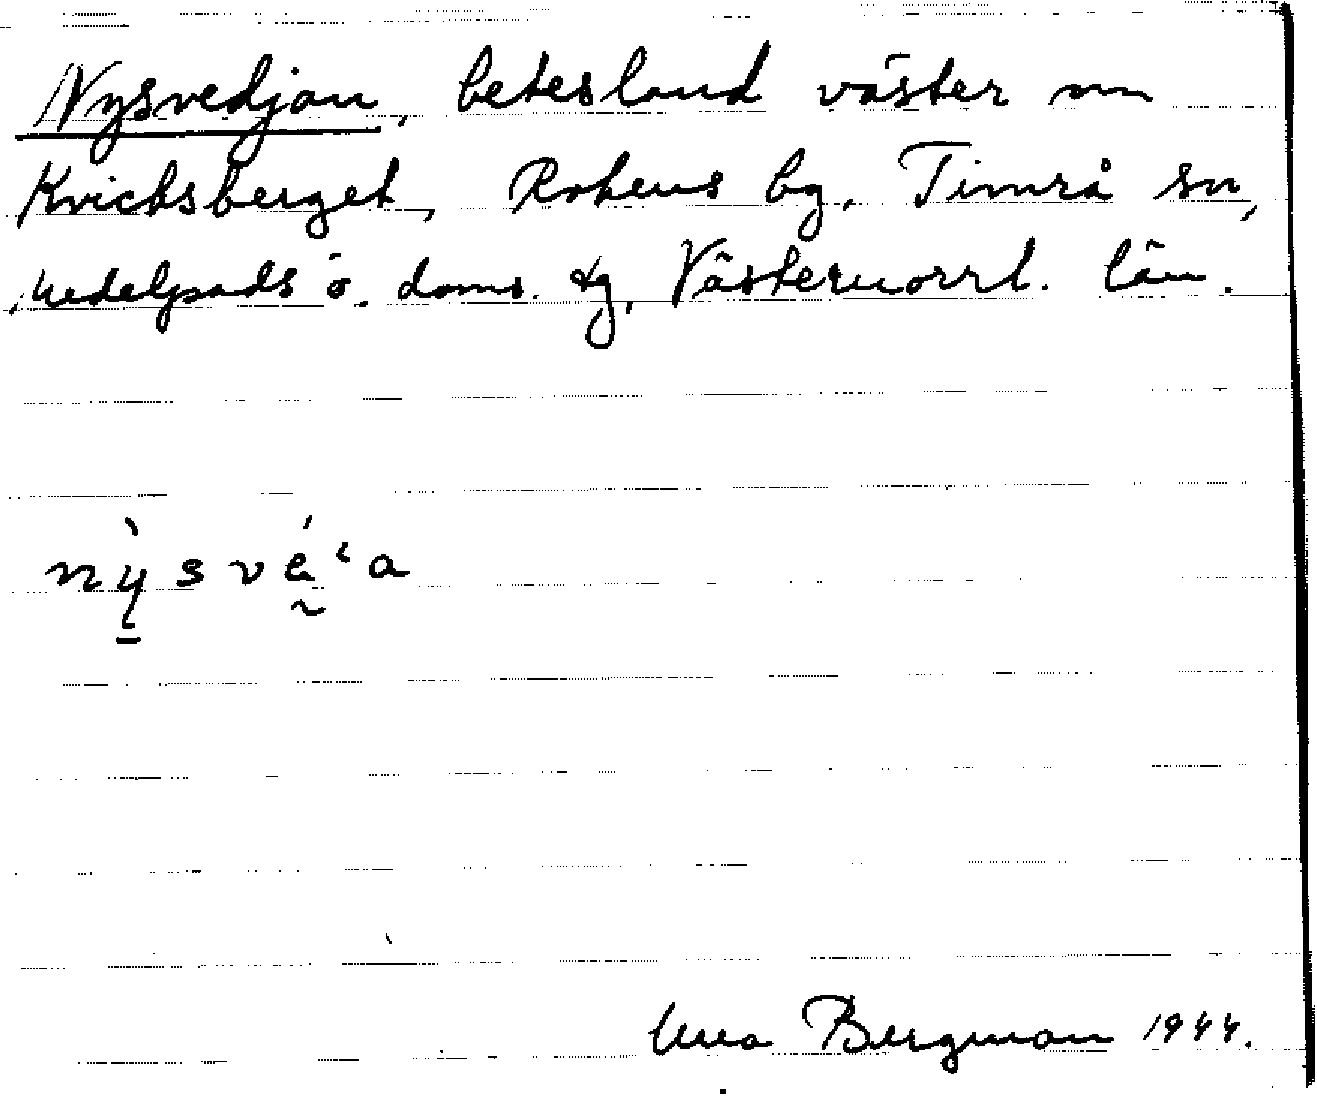 Nysvedjan, betesland väster om
Kvicksberget, Rotens by, Timrå sn,
Medelpads ö. doms. tg, Västernorrl. län.
nỳ̱svḛ́ʿa
Bergman 1944.